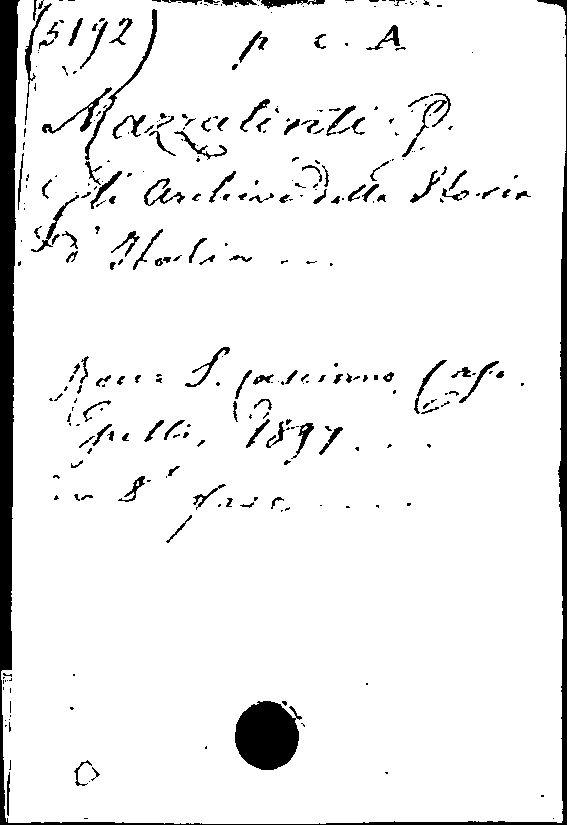 (5192) p c. A
Mazzatinti G.
Gli Archivi della Storia
d'Italia ...
Rocca S. Casciano, Cap-
pelli, 1897....
in 8° fasc.....